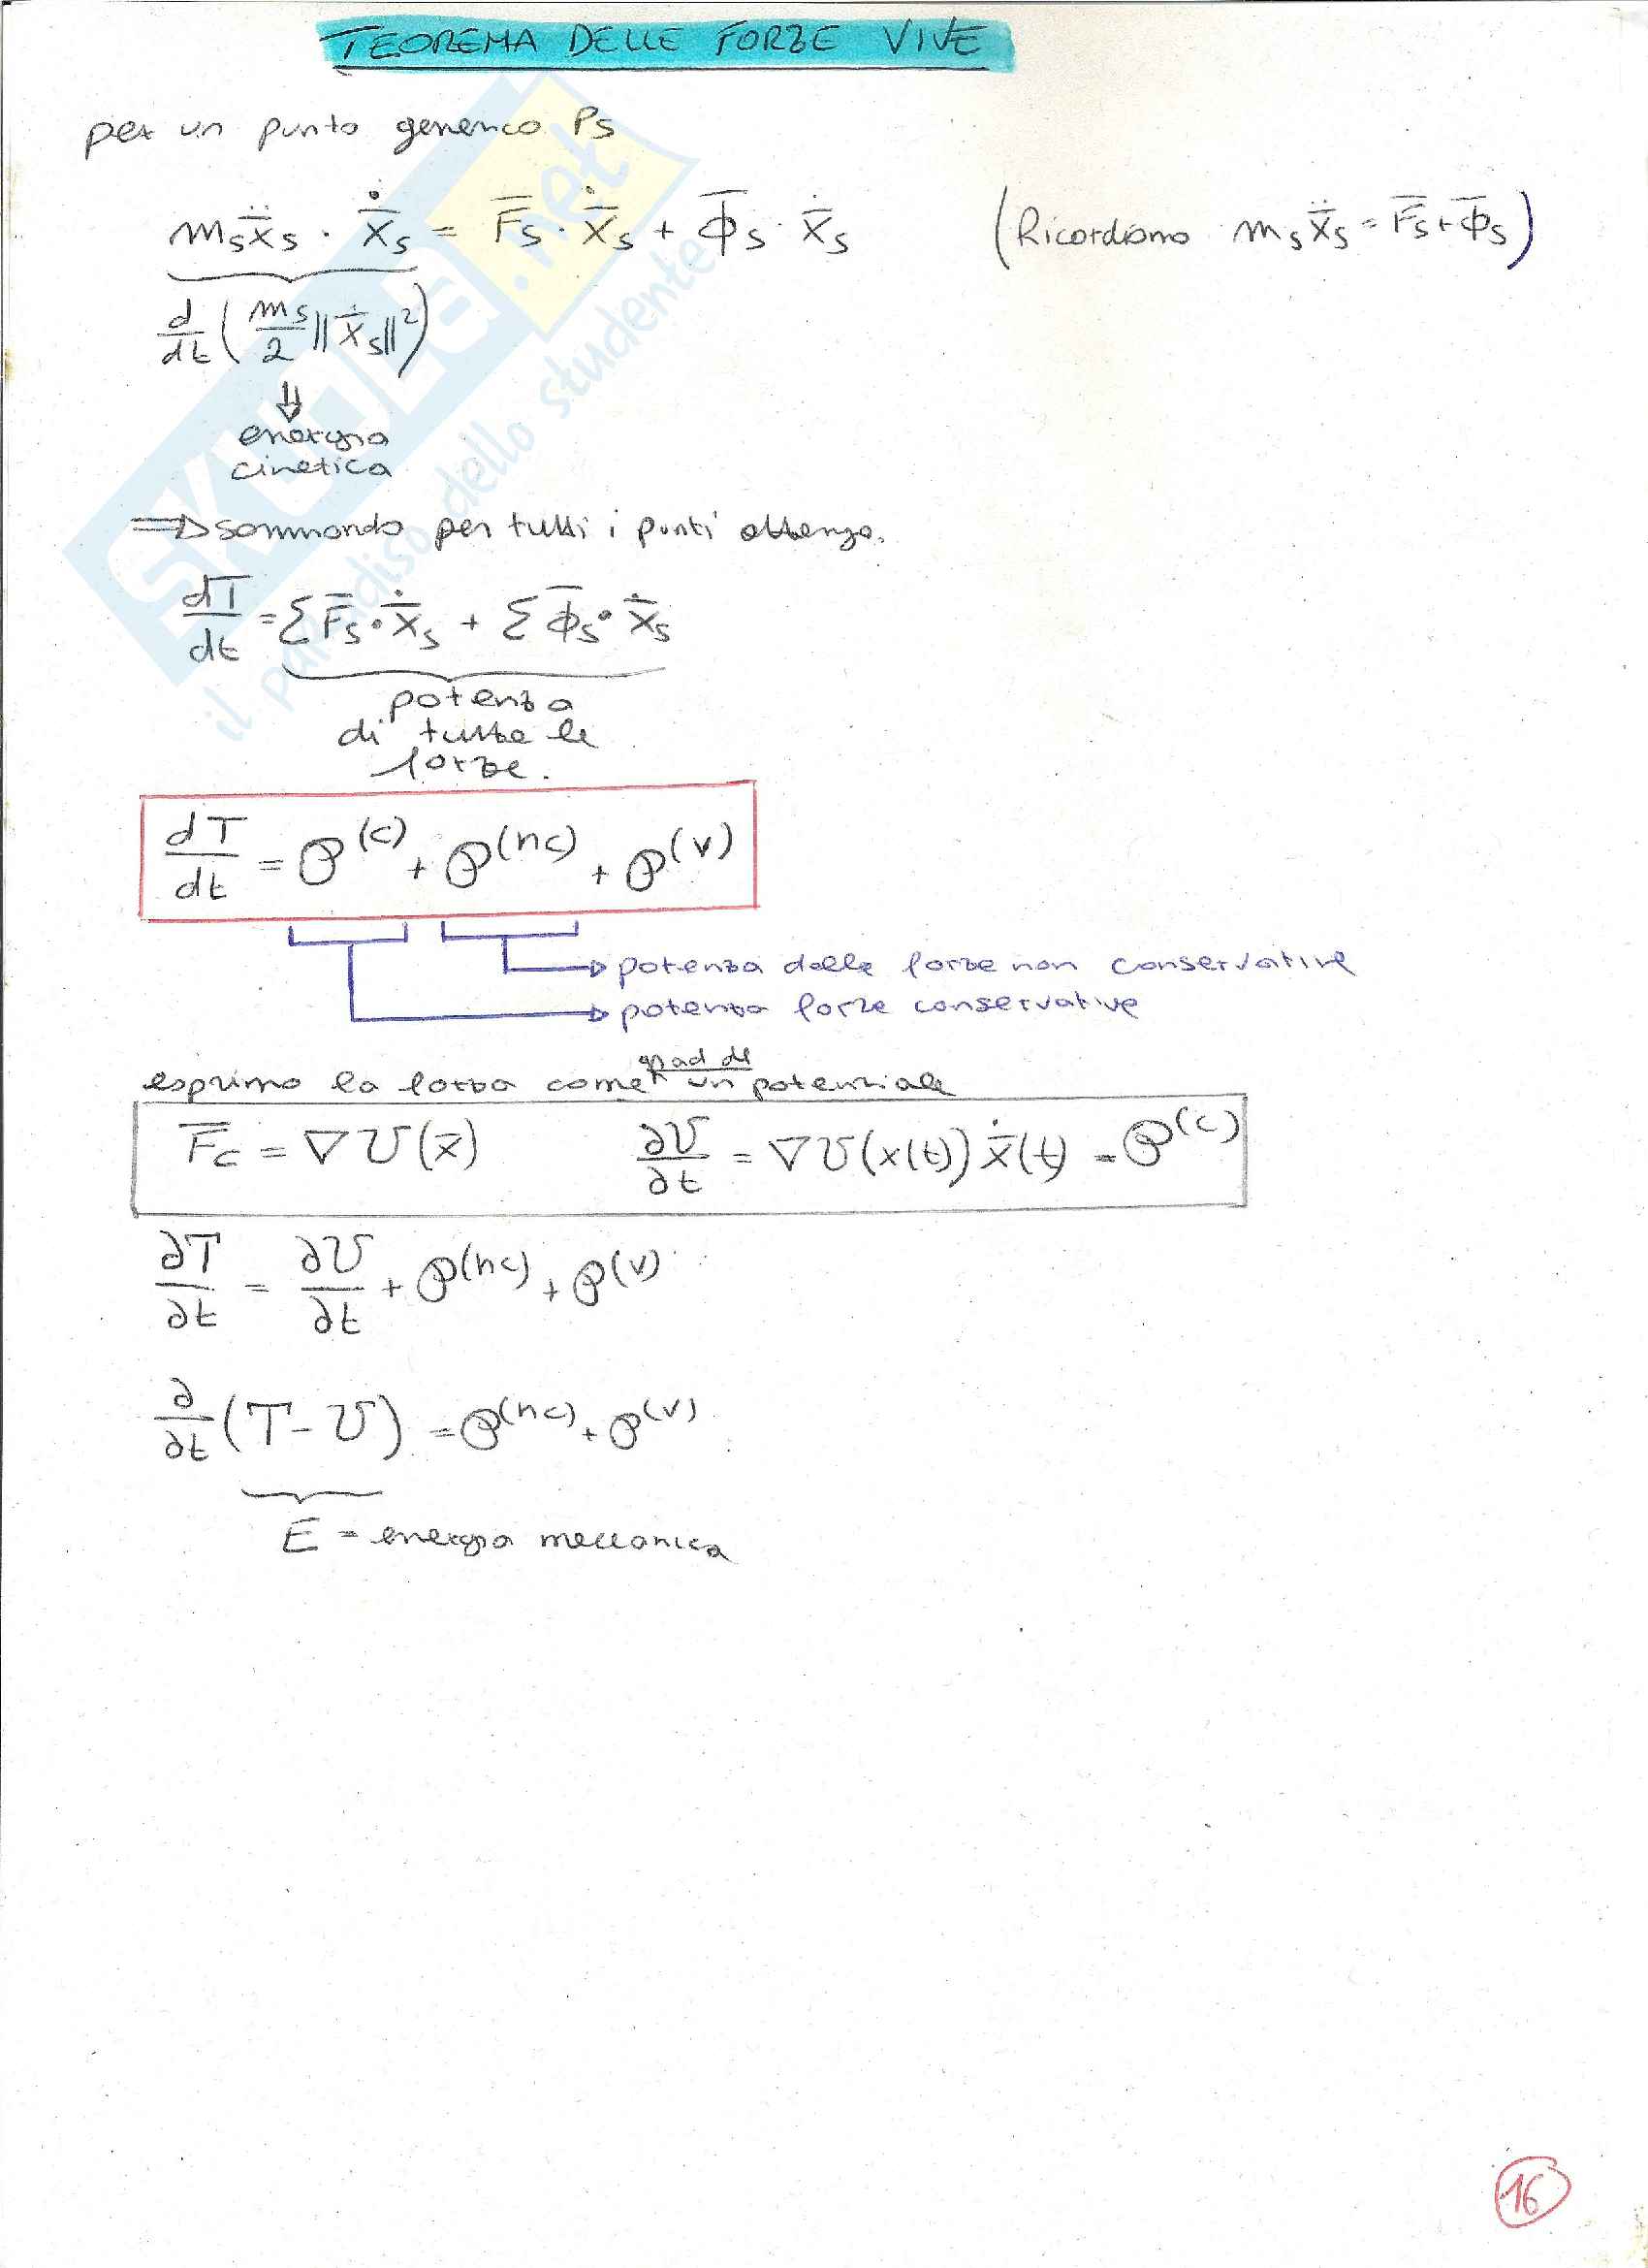 TEOREMA DELLE FORZE VIVE
per un punto generico Ps
m_s ẍ̄_s · ẋ̄_s = F̄_s · ẋ̄_s + Φ̄_s · ẋ̄_s (Ricordiamo m_s ẍ̄_s = F̄_s + Φ̄_s)
d/dt (m_s/2 ||ẋ̄_s||²)
⇓
energia
cinetica
⇒ sommando per tutti i punti ottengo.
dT/dt = Σ F̄_s · ẋ̄_s + Σ Φ̄_s · ẋ̄_s
potenza
di tutte le
forze.
dT/dt = P^(c) + P^(nc) + P^(v)
potenza delle forze non conservative
potenza forze conservative
grad di
esprimo la forza come un potenziale
F̄_c = ∇U(x̄) ∂U/∂t = ∇U(x(t)) ẋ̄(t) = P^(c)
∂T/∂t = ∂U/∂t + P^(nc) + P^(v)
∂/∂t (T - U) = P^(nc) + P^(v)
E = energia meccanica
16
SKUOLA.net
il paradiso dello studente